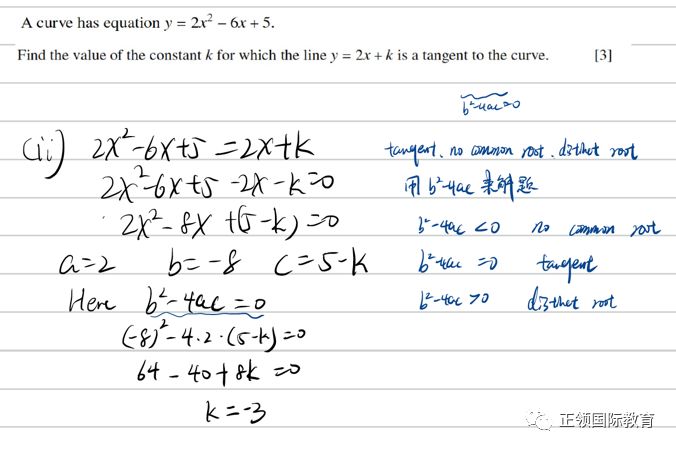 A curve has equation y = 2x² − 6x + 5.
Find the value of the constant k for which the line y = 2x + k is a tangent to the curve. [3]
b²-4ac=0
(ii) 2x²-6x+5 = 2x+k
2x²-6x+5-2x-k=0
2x²-8x+(5-k)=0
a=2 b=-8 c=5-k
Here b²-4ac=0
(-8)²-4·2·(5-k)=0
64-40+8k=0
k=-3
tangent. no common root. distinct root
用 b²-4ac 来解题
b²-4ac <0 no common root
b²-4ac =0 tangent
b²-4ac >0 distinct root
正领国际教育